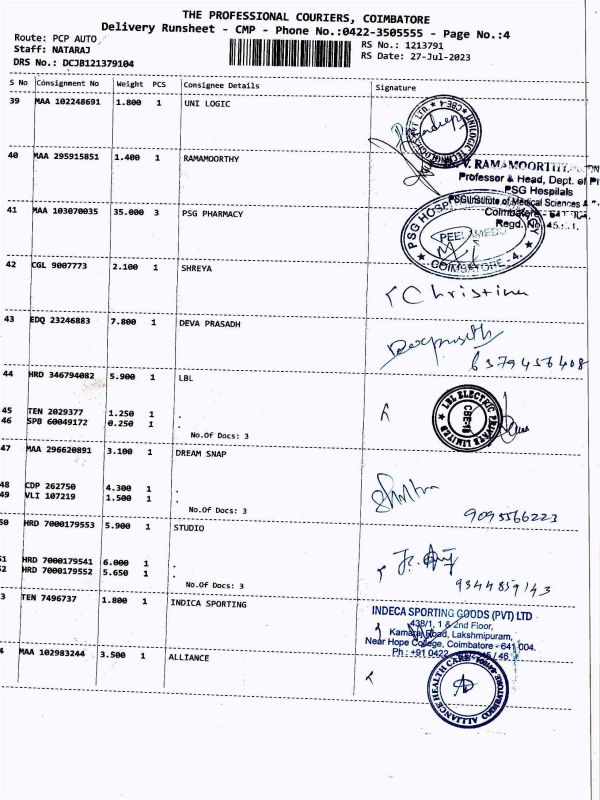 THE PROFESSIONAL COURIERS, COIMBATORE
Delivery Runsheet - CMP - Phone No.:0422-3505555 - Page No.:4
Route: PCP AUTO
Staff: NATARAJ
DRS No.: DCJB121379104
RS No.: 1213791
RS Date: 27-Jul-2023
S No Consignment No Weight PCS Consignee Details Signature
39 MAA 102248691 1.800 1 UNI LOGIC
40 MAA 295915851 1.400 1 RAMAMOORTHY
V. RAMAMOORTHY
Professor & Head, Dept. of
PSG Hospitals
PSG Institute of Medical Sciences &
Coimbatore-
Regd. No.
41 MAA 103070035 35.000 3 PSG PHARMACY
PSG HOSPITALS
PEELAMEDU
COIMBATORE - 4.
42 CGL 9007773 2.100 1 SHREYA
Christina
43 EDQ 23246883 7.800 1 DEVA PRASADH
6379456408
44 HRD 346794082 5.900 1 LBL
LBL ELECTRIC PRIVATE LIMITED
CBE-18
45 TEN 2029377 1.250 1 .
46 SPB 60049172 0.250 1 .
No.Of Docs: 3
47 MAA 296620891 3.100 1 DREAM SNAP
48 CDP 262750 4.300 1 .
49 VLI 107219 1.500 1 .
No.Of Docs: 3
9095566223
50 HRD 7000179553 5.900 1 STUDIO
51 HRD 7000179541 6.000 1 .
52 HRD 7000179552 5.650 1 .
No.Of Docs: 3
9344859143
3 TEN 7496737 1.800 1 INDICA SPORTING
INDECA SPORTING GOODS (PVT) LTD
438/1, 1 & 2nd Floor,
Kamaraj Road, Lakshmipuram,
Near Hope College, Coimbatore - 641 004.
Ph : +91 0422
4 MAA 102983244 3.500 1 ALLIANCE
ALLIANCE HEALTH CARE